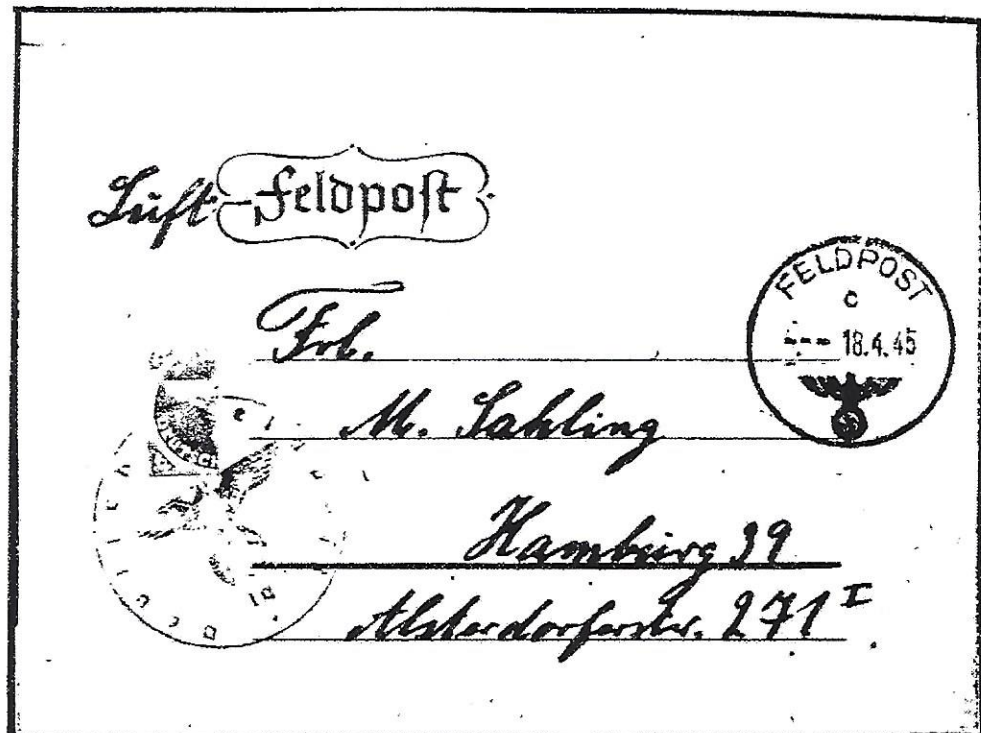 Luft-Feldpost
FELDPOST
c
--- 18.4.45
Frl.
M. Sahling
Hamburg 39
Alsterdorferstr. 271 I